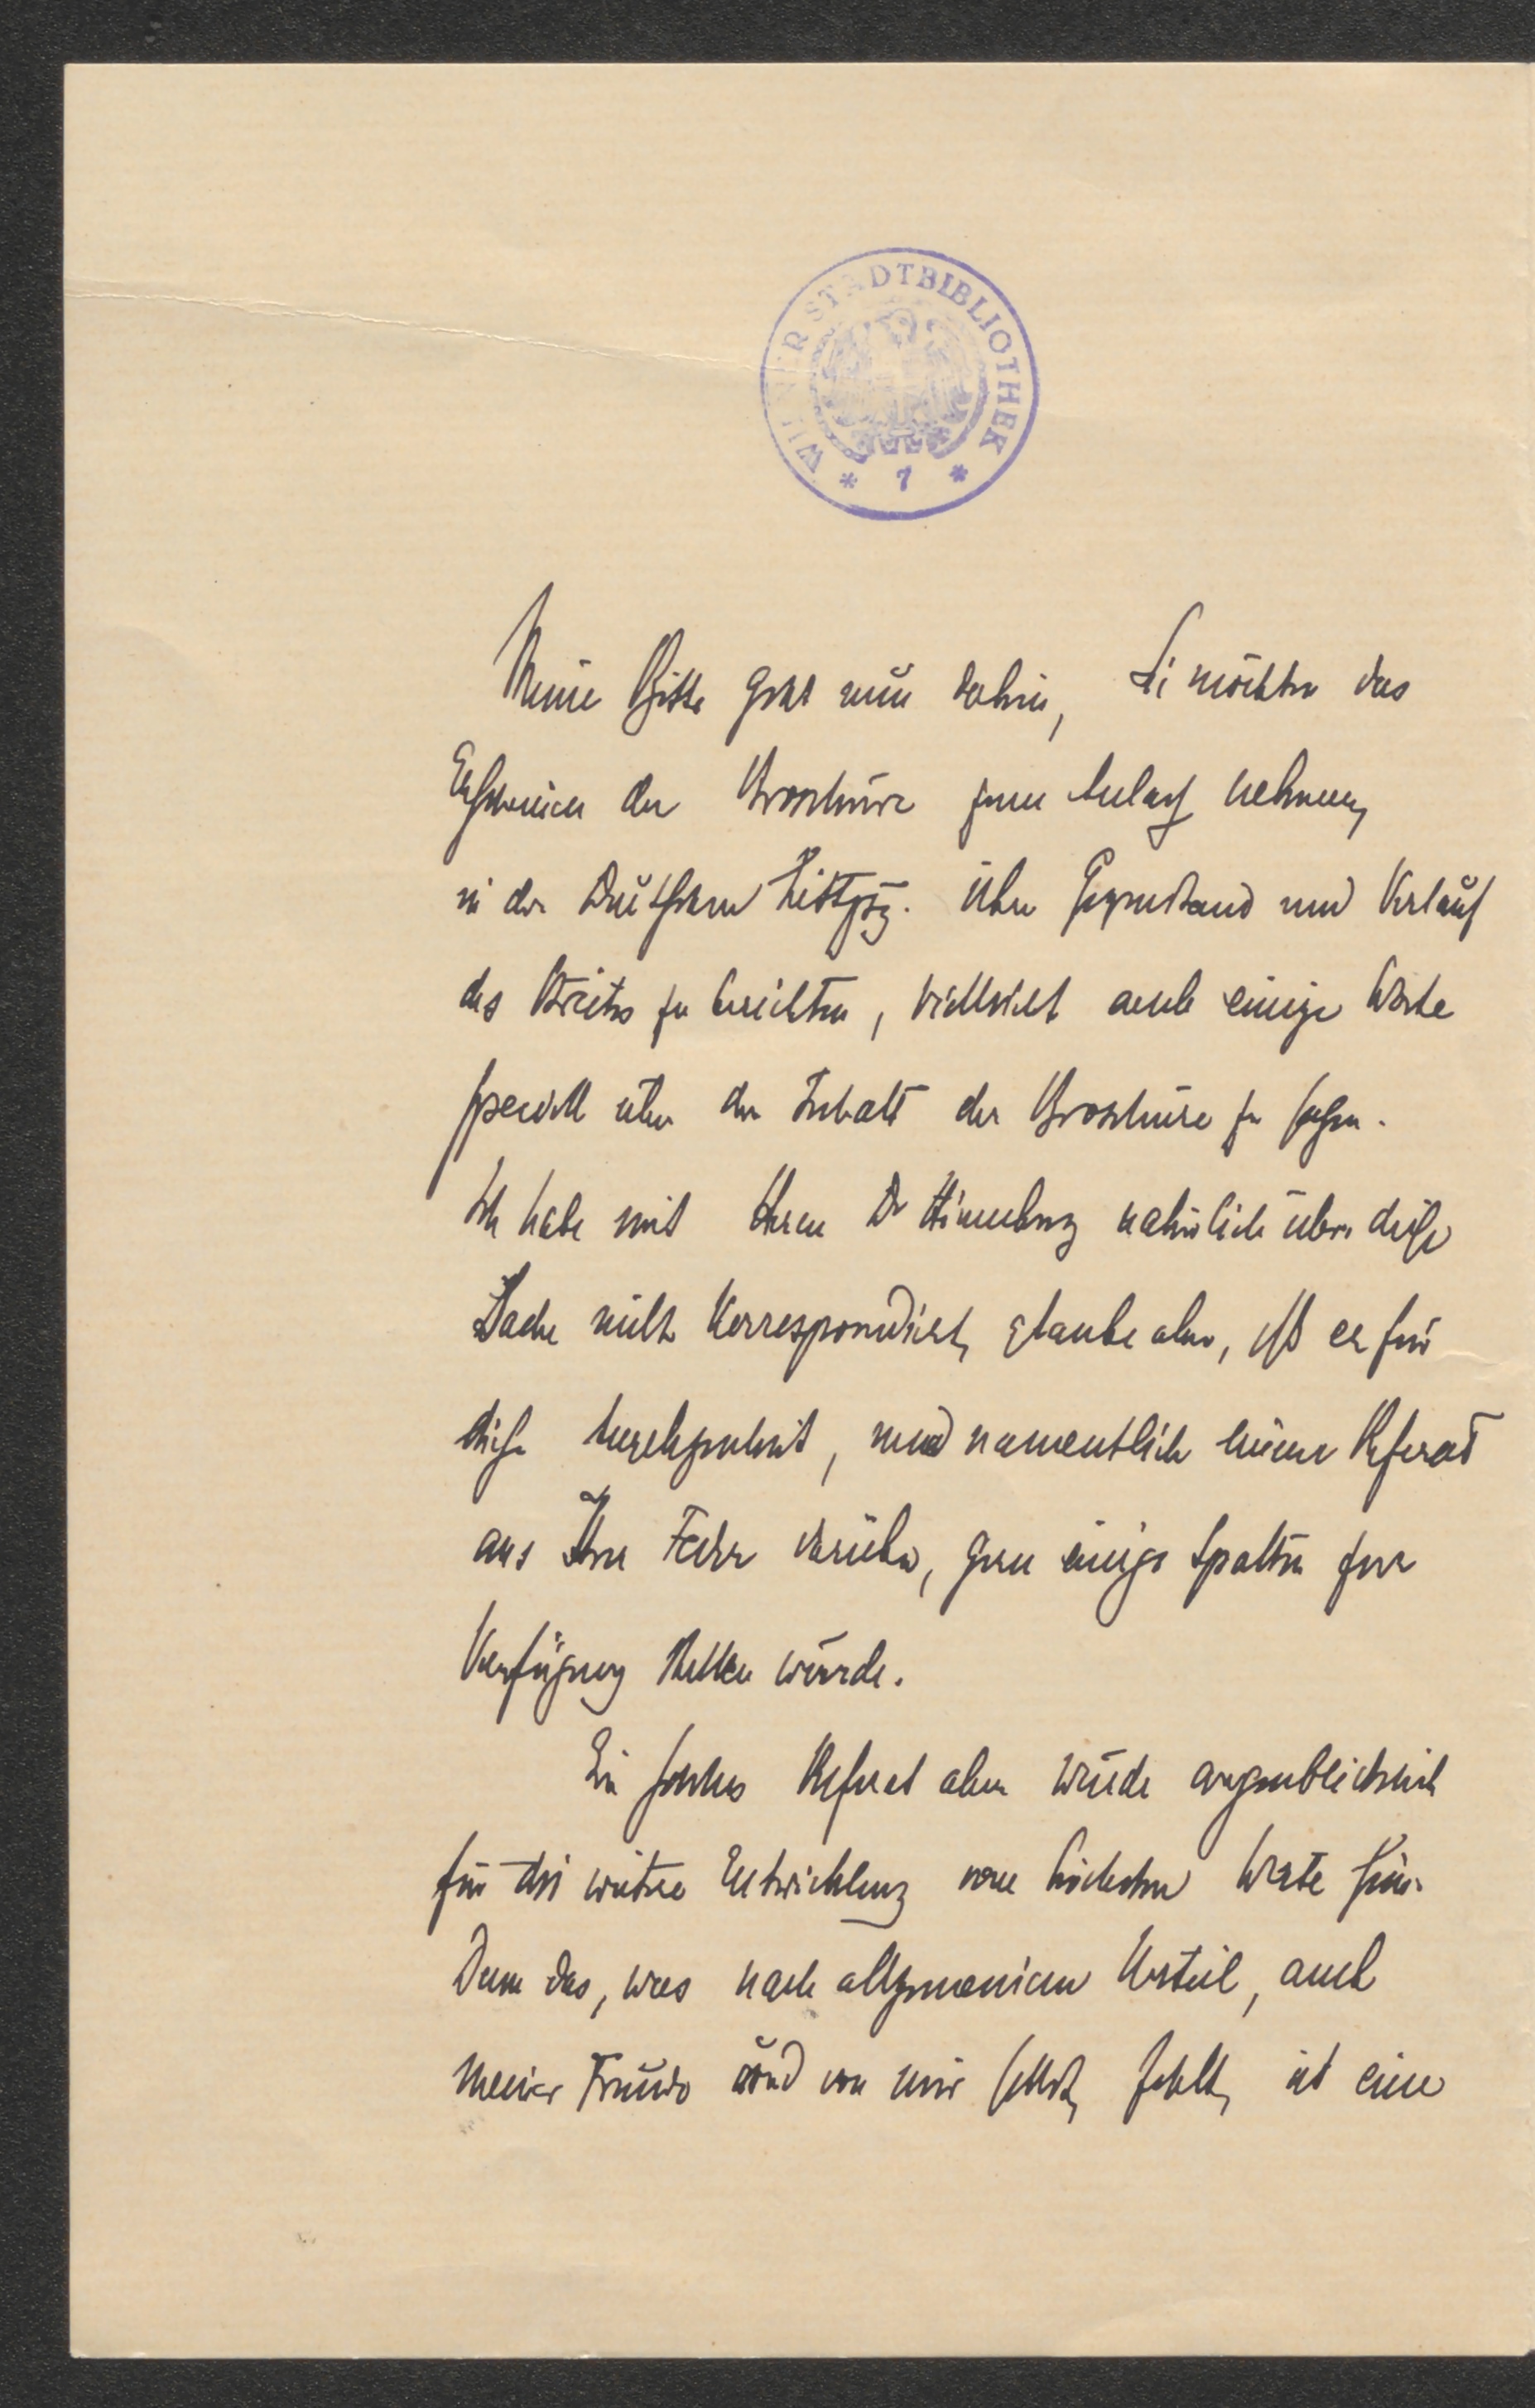 WIENER STADTBIBLIOTHEK
* 7 *
Meine Bitte geht nun dahin, Sie möchten das
Erscheinen der Broschüre zum Anlass nehmen,
in der Deutschen Littztg. über Gegenstand und Verlauf
des Streites zu berichten, vielleicht auch einige Worte
speciell über den Inhalt der Broschüre zu sagen.
Ich habe mit Herrn Dr Hinneberg natürlich über diese
Sache nicht korrespondirt, glaube aber, dß er für
diese Angelegenheit, und namentlich einem Referat
aus Ihrer Feder darüber, gern einige Spalten zur
Verfügung stellen würde.
Ein solches Referat aber würde augenblicklich
für die weitere Entwicklung vom höchsten Werte sein.
Denn das, was nach allgemeinem Urteil, auch
meiner Freunde und von mir selbst, fehlt, ist eine